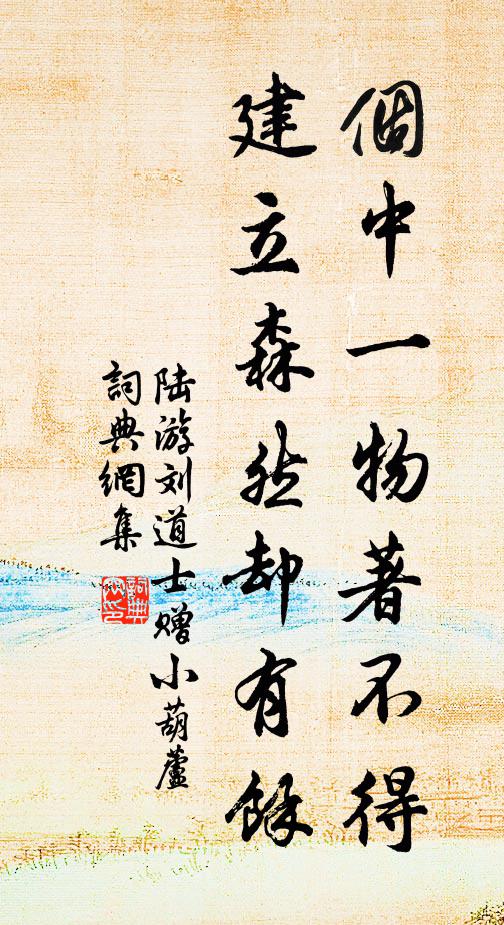 個中一物著不得
建立森然却有餘
陆游刘道士赠小葫蘆
詞典網集